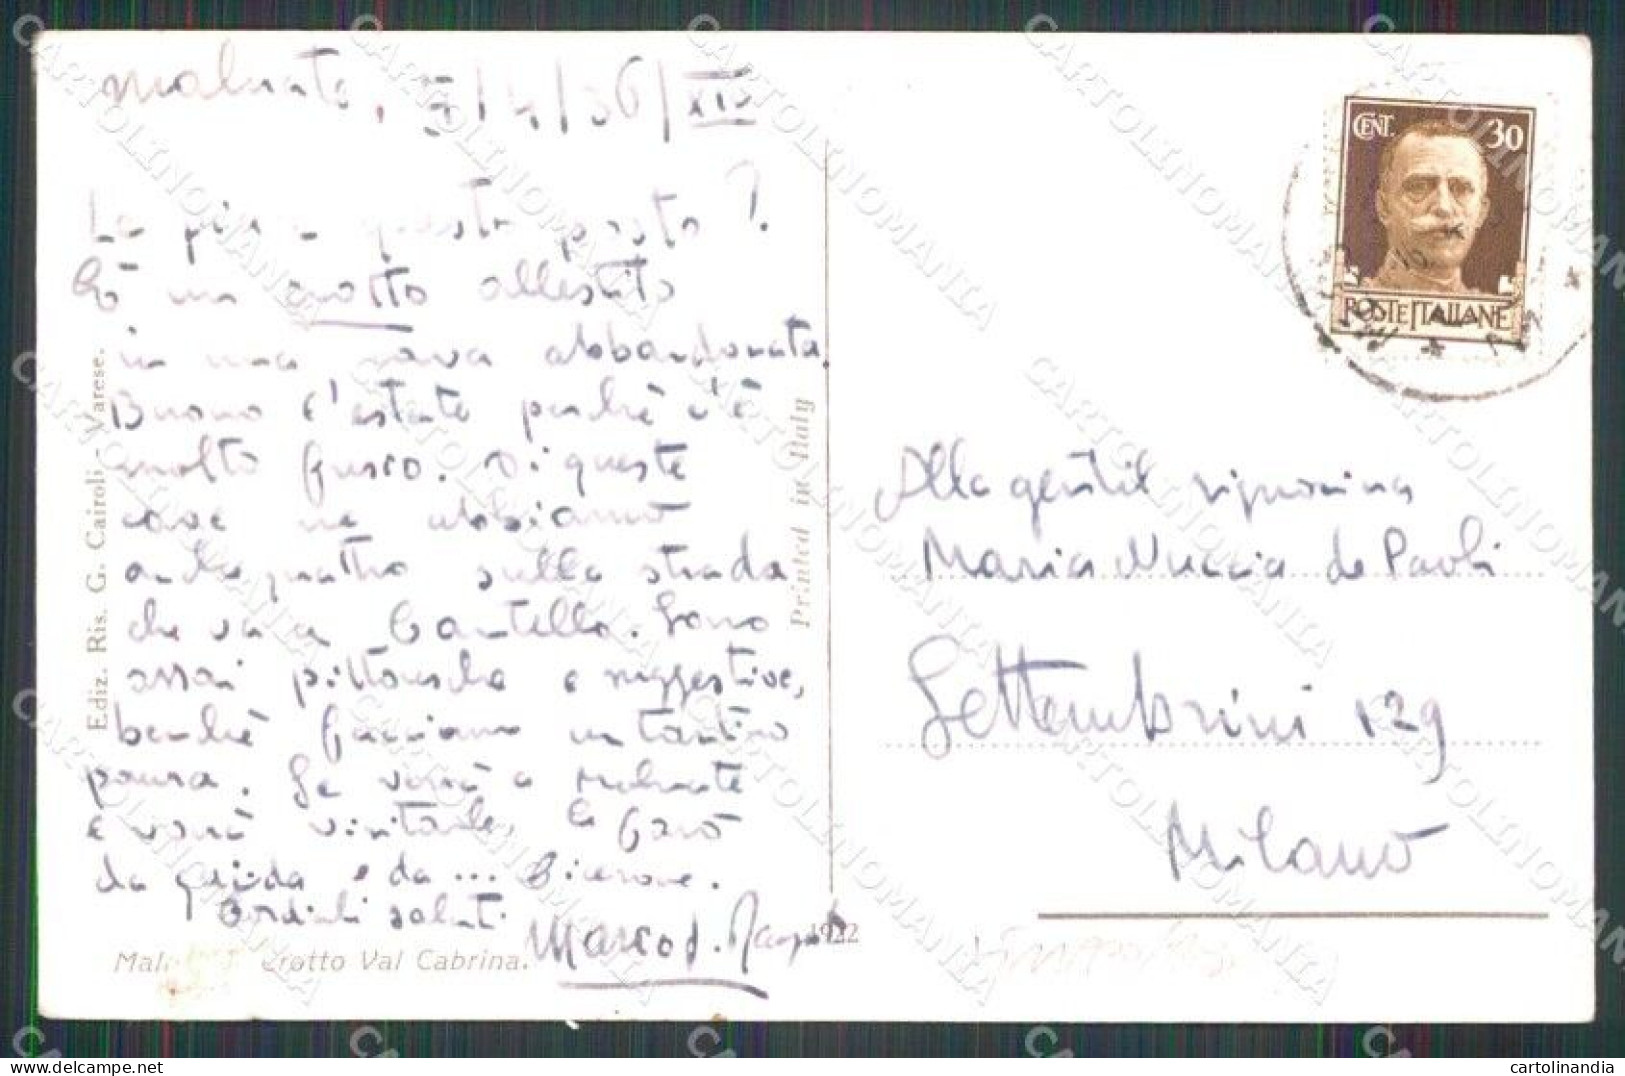 Malnate, 7/4/36/XIV
Le piace questo posto?
È un grotto allestito
in una cava abbandonata.
Buono l'estate perché c'è
molto fresco. Di queste
cave ne abbiamo
anche quattro sulla strada
che va a Cantello. Sono
assai pittoresche e suggestive,
benché facciano un tantino
paura. Se verrà a Malnate
e vorrà visitarle, le farò
da guida e da ... Cicerone.
Cordiali saluti
Marco
Ediz. Ris. G. Cairoli - Varese.
Grotto Val Cabrina.
1922
Printed in Italy
CENT. 30
POSTE ITALIANE
Alla gentil signorina
Maria Nuccia de Paoli
Settembrini 129
Milano
CARTOLINOMANIA
cartolinandia